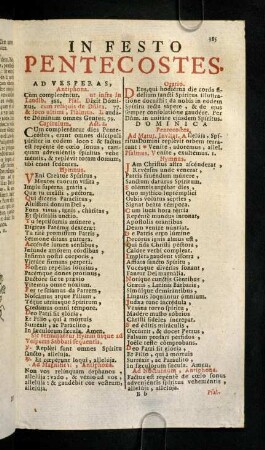 385
IN FESTO
PENTECOSTES.
AD VESPERAS,
Antiphona.
Cùm complerentur, ut infra in
Laudib. 391. Psal. Dixit Domi-
nus, cum reliquis de Domin. 77.
& loco ultimi, Psalmus. Laudá-
te Dóminum omnes Gentes, 70.
Capitulum. Act. 2.
CUm compleréntur dies Pente-
costes, erant omnes discípuli
páriter in eódem loco: & factus
est repénte de cœlo sonus, tam-
quam adveniéntis spíritus vehe-
mentis, & replévit totam domum
ubi erant sedéntes.
Hymnus.
VEni Creátor Spíritus,
Mentes tuórum visita:
Imple supérna grátiâ
Quæ tu creásti, péctora.
Qui díceris Paráclitus,
Altíssimi donum Dei,
Fons vivus, ignis, cháritas,
Et spiritális únctio.
Tu septifórmis múnere,
Dígitus Patérnæ dexteræ:
Tu ritè promíssum Patris,
Sermóne ditans gúttura.
Accénde lumen sénsibus,
Infúnde amórem córdibus;
Infírma nostri córporis,
Virtúte firmans pérpeti.
Hostem repéllas lóngius,
Pacémque dones prótinus:
Ductóre sic te prævio
Vitémus omne nóxium.
Per te sciámus da Patrem,
Noscámus atque Fílium:
Téque utriúsque Spíritum
Credámus omni témpore.
Deo Patri sit glória,
Et Fílio, qui à mórtuis
Surréxit, ac Paráclito,
In sæculórum sæcula. Amen.
Sic terminantur Hymni usque ad
Vesperas Sabbati sequentis.
℣. Repléti sunt omnes Spíritu
sancto, allelúja.
℟. Et cœpérunt loqui, allelúja.
Ad Magnificat, Antiphona.
Non vos relínquam órphanos
allelúja: vado, & vénio ad vos,
allelúja: & gaudébit cor vestrum,
allelúja.
Oratio.
DEus, qui hodiérna die corda fi-
délium sancti Spíritus illustra-
tióne docuísti: da nobis in eódem
Spíritu recta sápere, & de ejus
semper consolatióne gaudére. Per
Dóm. in unitáte ejúsdem Spíritûs.
DOMINICA
Pentecostes,
Ad Matut. Invitat. Allelúja: Spí-
ritus Dómini replévit orbem terrá-
rum: * Veníte, adorémus, allel.
Psalmus. Veníte, exultémus. 1.
Hymnus.
JAm Christus astra ascénderat
Revérsus unde vénerat,
Patris fruéndum múnere
Sanctum datúrus Spíritum.
Solémnis urgébat dies
Quo mýstico septémplici
Orbis volútus sépties
Signat beáta témpora.
Cum lucis hora tértia
Repénte mundus íntonat,
Apóstolis orántibus
Deum veníre núntiat.
De Patris ergo lúmine
Decórus ignis almus est
Qui fida Christi péctora
Calóre verbi cómpleat.
Impléta gaudent víscera
Affláta sancto Spíritu
Vocésque divérsas sonant
Fantur Dei magnália.
Notíque cunctis géntibus
Græcis, Latínis Bárbaris
Simúlque demirántibus
Linguis loquúntur ómnium.
Judæa tunc incrédula
Vesána torvo spíritu
Madére musto sóbrios
Christi fidéles íncrepat.
Sed éditis miráculis,
Occúrrit, & docet Petrus
Falsum profári pérfidos
Joéle teste cómprobans.
Deo Patri sit glória
Et Fílio, qui à mórtuis
Surréxit, ac Paráclito
In sæculórum sæcula. Amen.
Ad Nocturnum, Antiphona.
Factus est repénte de cœlo sonus
adveniéntis spíritus veheméntis,
allelúja, allelúja.
B b
Psal-